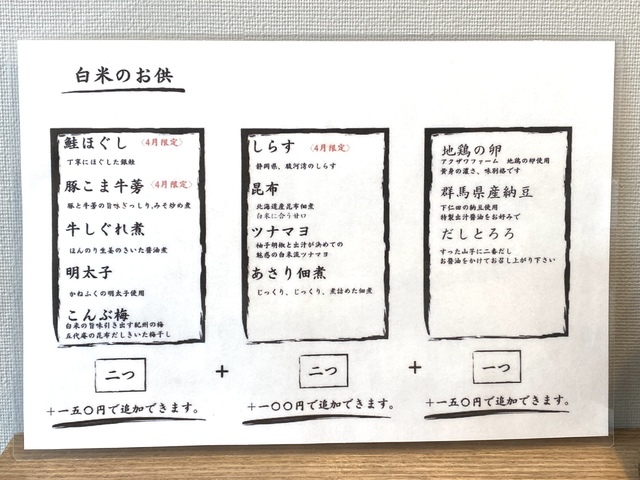 白米のお供
鮭ほぐし 〈4月限定〉
丁寧にほぐした銀鮭
豚こま牛蒡 〈4月限定〉
豚と牛蒡の旨味ぎっしり、みそ炒め煮
牛しぐれ煮
ほんのり生姜のきいた醤油煮
明太子
かねふくの明太子使用
こんぶ梅
白米の旨味引き出す紀州の梅
五代庵の昆布だしきいた梅干し
二つ
+一五〇円で追加できます。
+
しらす 〈4月限定〉
静岡県、駿河湾のしらす
昆布
北海道産昆布佃煮
白米に合う甘口
ツナマヨ
柚子胡椒と出汁が決めての
魅惑の白米流ツナマヨ
あさり佃煮
じっくり、じっくり、煮詰めた佃煮
二つ
+一〇〇円で追加できます。
+
地鶏の卵
アクザワファーム 地鶏の卵使用
黄身の濃さ、味別格です
群馬県産納豆
下仁田の納豆使用
特製出汁醤油をお好みで
だしとろろ
すった山芋に二番だし
お醤油をかけてお召し上がり下さい
一つ
+一五〇円で追加できます。